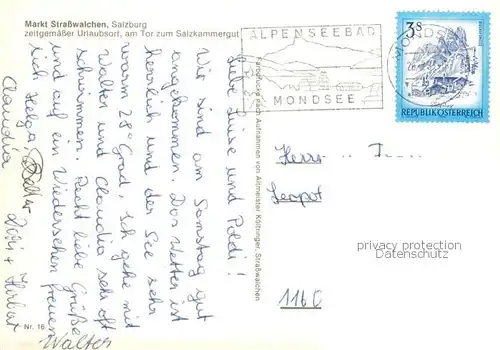 Markt Straßwalchen, Salzburg
zeitgemäßer Urlaubsort, am Tor zum Salzkammergut
Liebe Luise und Poldi!
Wir sind am Samstag gut
angekommen. Das Wetter ist
herrlich und der See sehr
warm 28° Grad. Ich gehe mit
Walter und Claudia sehr oft
schwimmen. Recht liebe Grüße
und auf ein Wiedersehen freuen
sich Helga
Claudia
Walter
Nr. 16
Farbdruck nach Aufnahmen von Altmeister Kölblinger, Straßwalchen
ALPENSEEBAD
MONDSEE
3S
REPUBLIK ÖSTERREICH
Herrn
Leopol
1160
privacy protection
Datenschutz